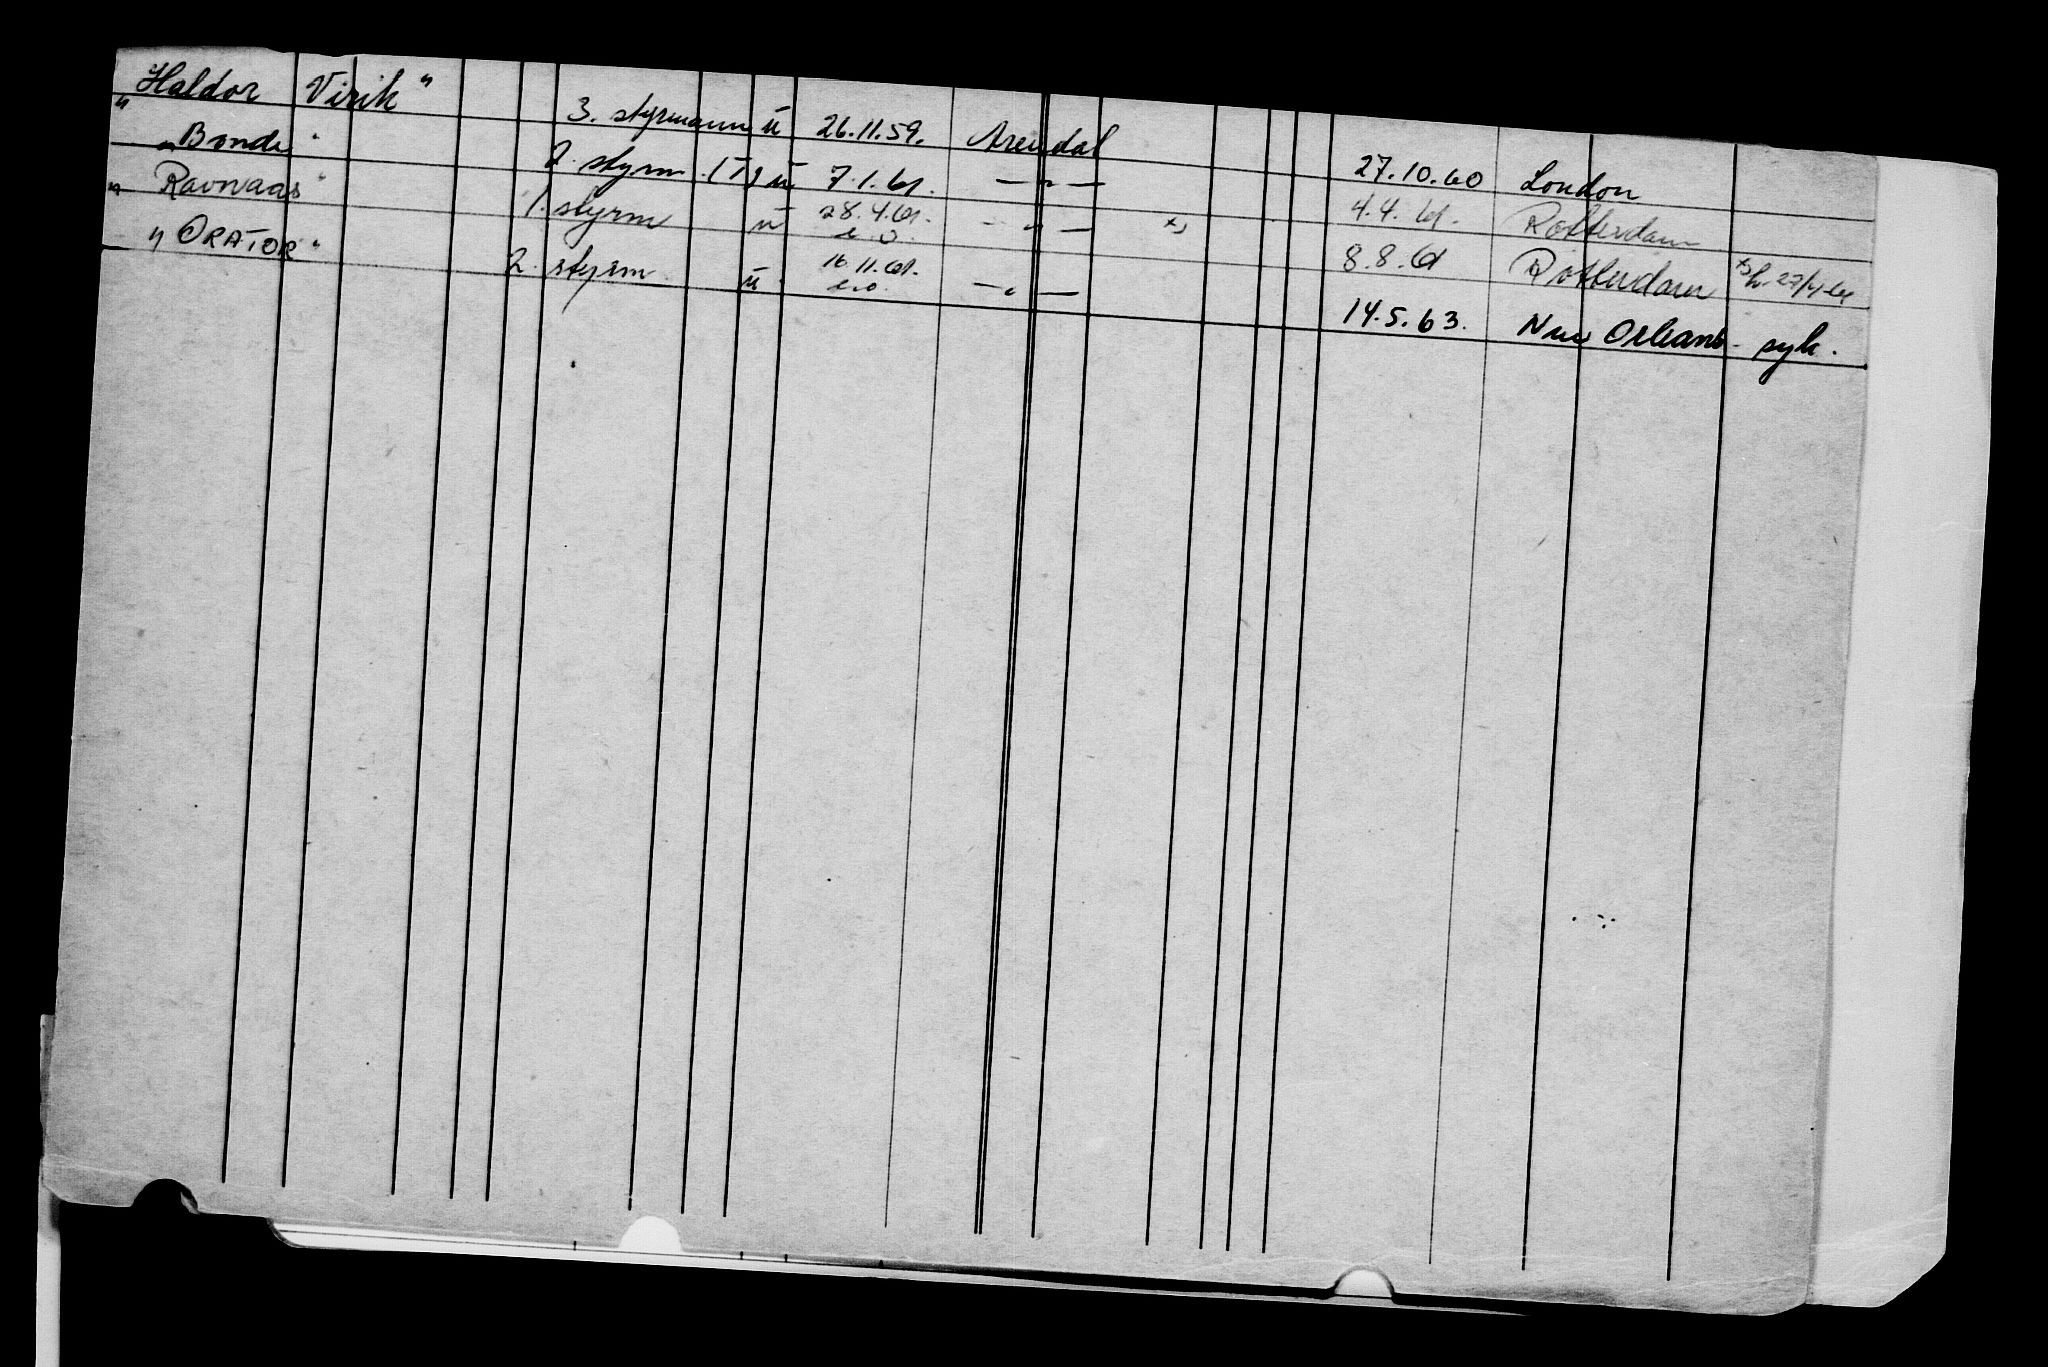 "Haldor Virik" 3. styrmann ü 26.11.59. Arendal 27.10.60 London
"Bonde" 2. styrm. (T) ü 7.1.61. — " — 4.4.61. Rotterdam
"Ravnaas" 1. styrm ü 28.4.61. — " — x) 8.8.61 Rotterdam x) h. 27/4-61
e.o.
"ORATOR" 2. styrm ü 16.11.61. — " — 14.5.63. New Orleans - syk.
e.o.